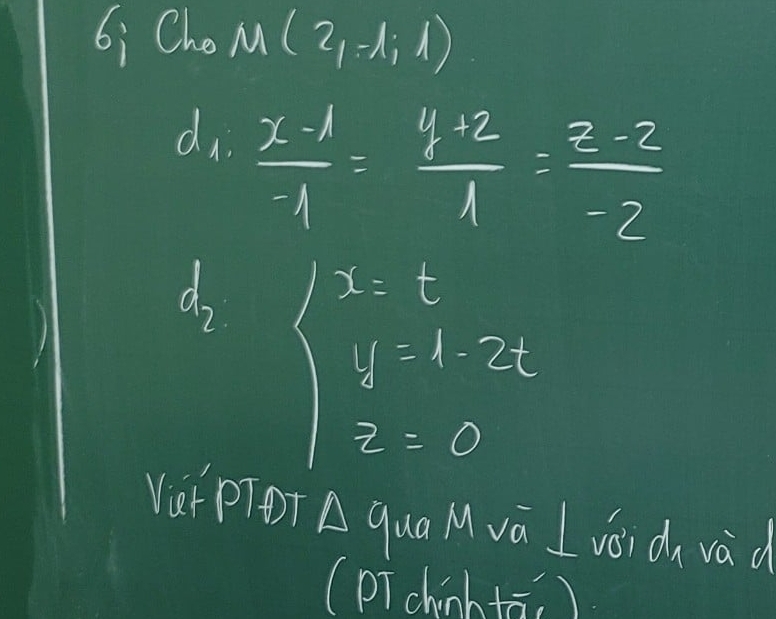 6; Cho M(2; -1; 1)
d₁: (x-1)/-1 = (y+2)/1 = (z-2)/-2
d₂: { x = t
y = 1-2t
z = 0
Viết PTĐT Δ qua M và ⊥ với d₁ và d
(PT chính tắc).